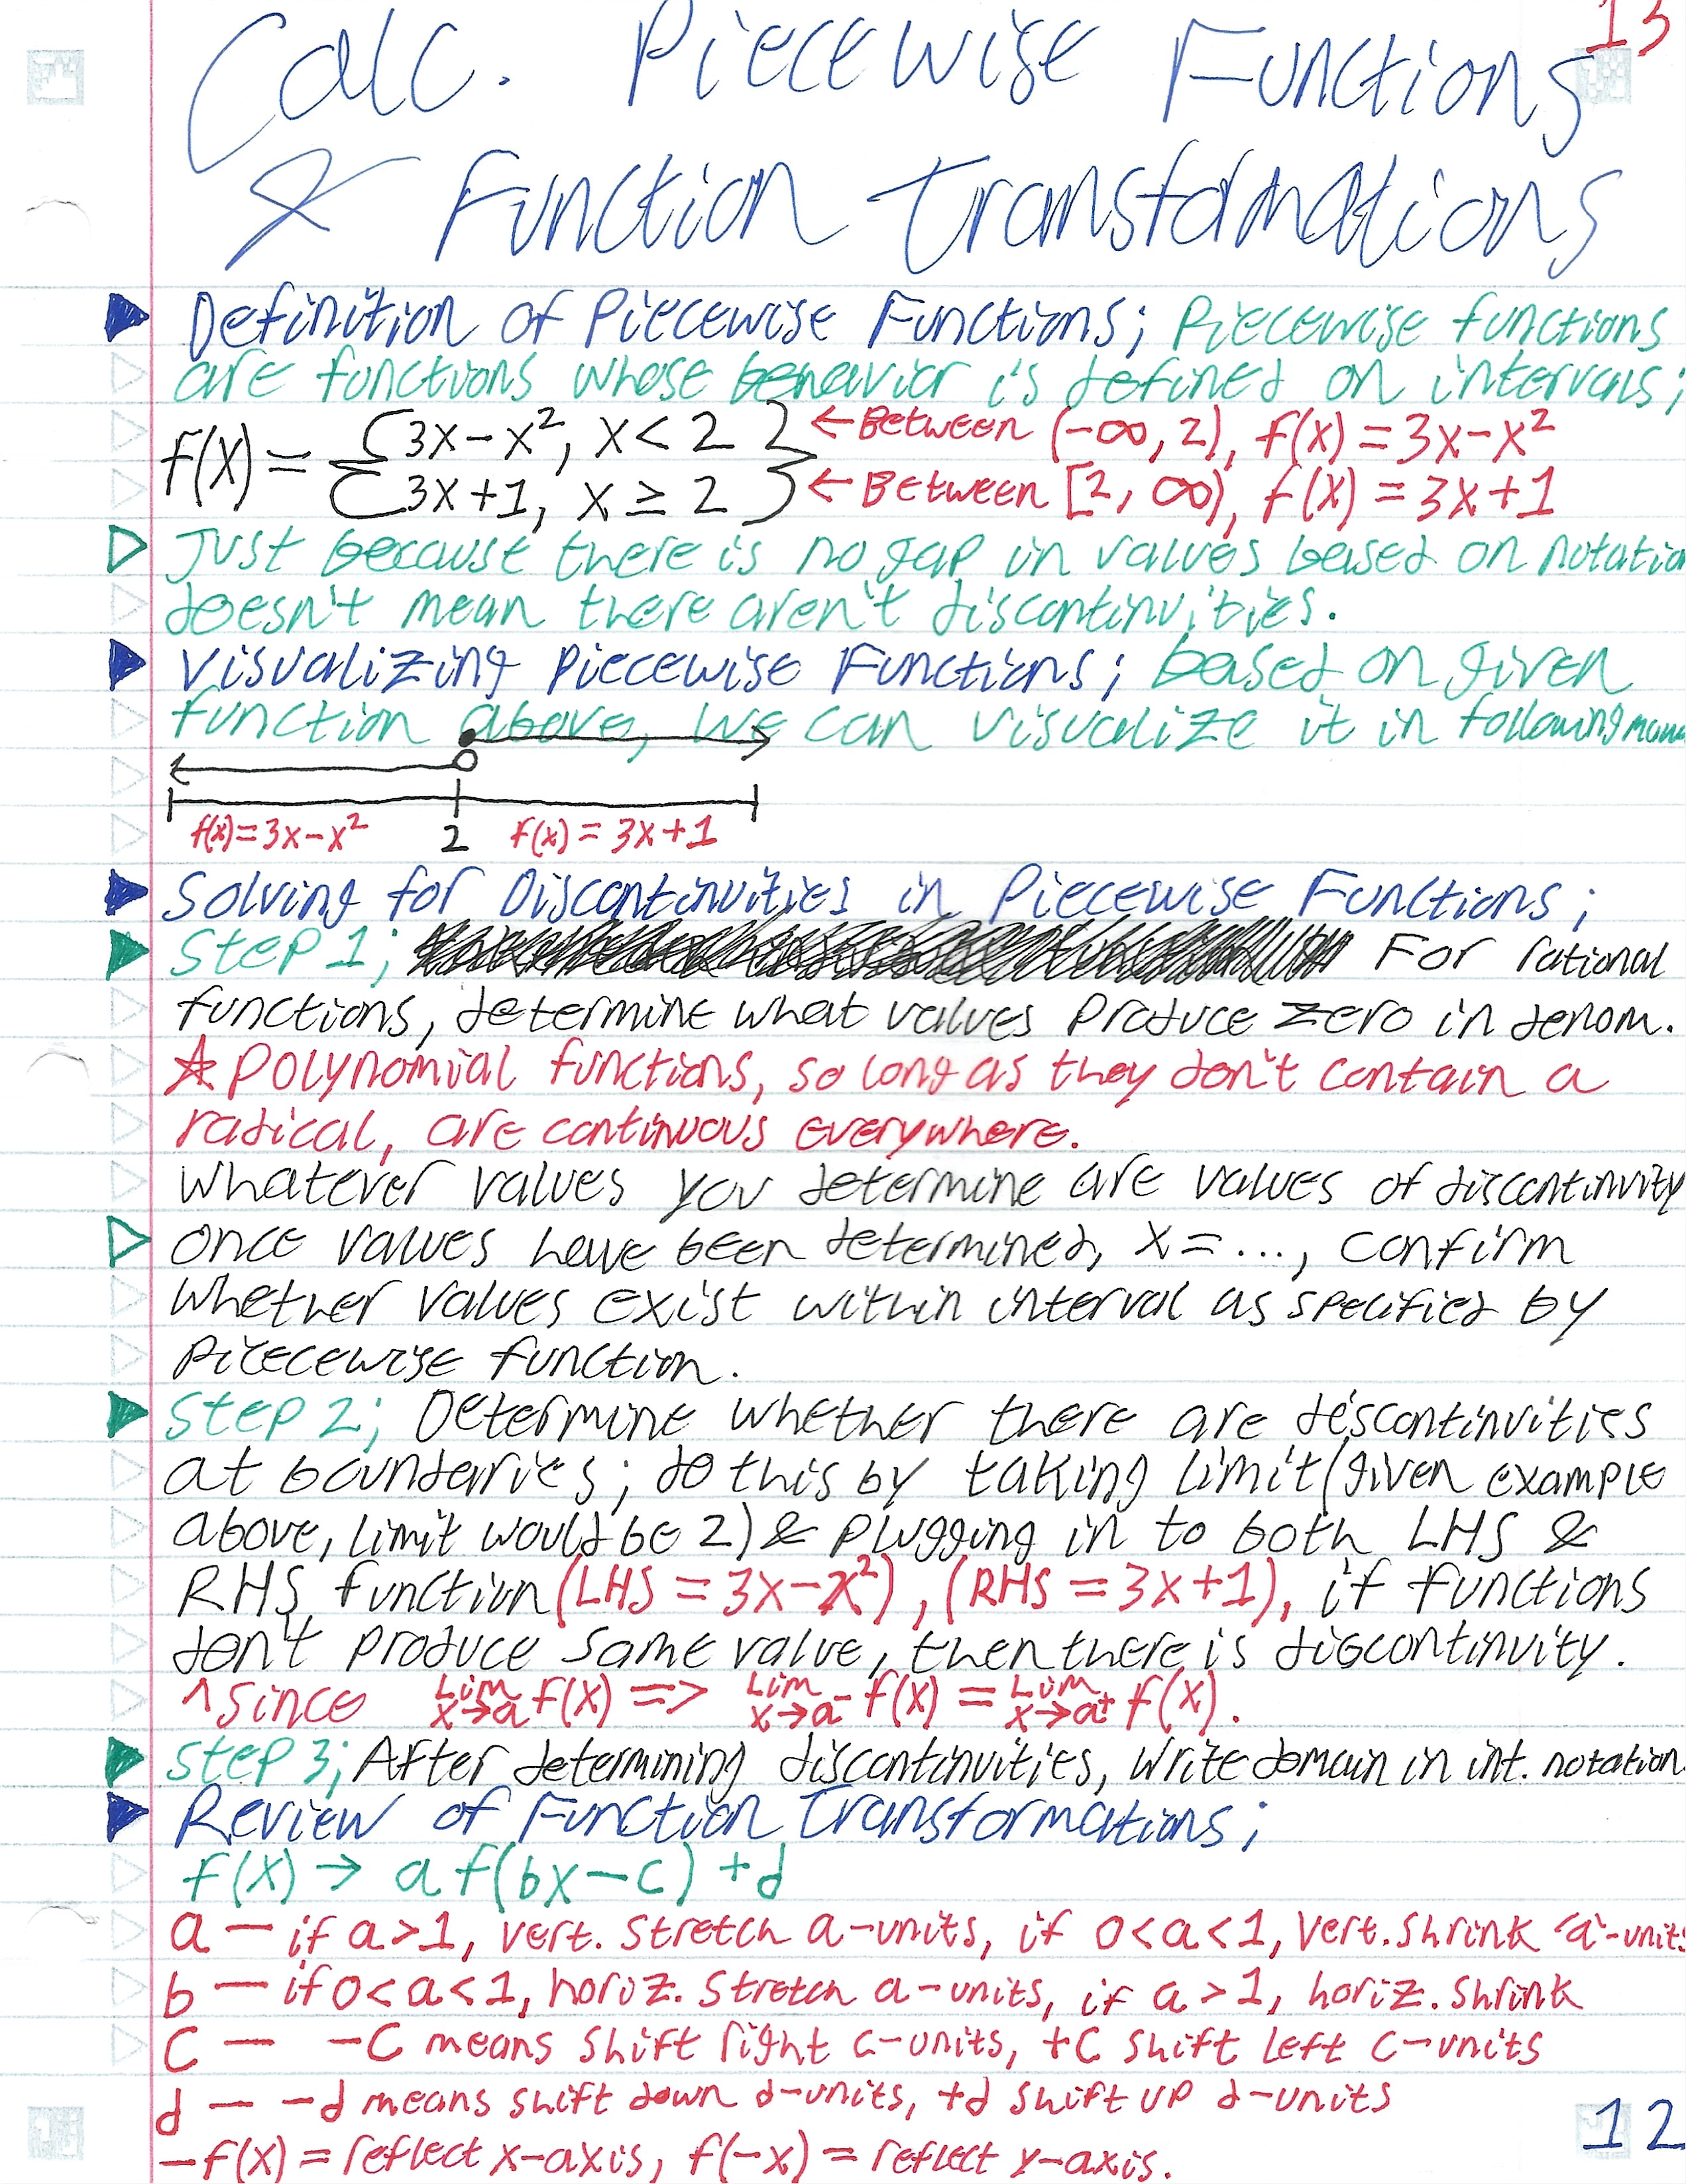 13
Calc. Piecewise Functions
& Function Transformations
Definition of Piecewise Functions; Piecewise functions
are functions whose behavior is defined on intervals;
f(x) = {3x-x², x<2 } ← Between (-∞, 2), f(x) = 3x-x²
{3x+1, x ≥ 2 } ← Between [2, ∞), f(x) = 3x+1
Just because there is no gap in values based on notatio
doesn't mean there aren't discontinuities.
Visualizing Piecewise Functions; based on given
function above, we can visualize it in following
f(x)=3x-x² 2 f(x) = 3x+1
Solving for Discontinuities in Piecewise Functions;
Step 1; For rational
functions, determine what values produce zero in denom.
☆ Polynomial functions, so long as they don't contain a
radical, are continuous everywhere.
Whatever values you determine are values of discontinuity
once values have been determined, x = ..., confirm
whether values exist within interval as specified by
piecewise function.
Step 2; Determine whether there are discontinuities
at boundaries; do this by taking limit (given example
above, limit would be 2) & plugging in to both LHS &
RHS function (LHS = 3x-x²), (RHS = 3x+1), if functions
don't produce same value, then there is discontinuity.
^ Since Lim x→a f(x) => Lim x→a⁻ f(x) = Lim x→a⁺ f(x).
Step 3; After determining discontinuities, write domain in int. notation
Review of Function Transformations;
f(x) → a f(bx-c) + d
a — if a>1, vert. stretch a-units, if 0<a<1, vert. shrink 'a'-units
b — if 0<a<1, horiz. stretch a-units, if a>1, horiz. shrink
C — -C means shift right c-units, +C shift left C-units
d — -d means shift down d-units, +d shift up d-units
-f(x) = reflect x-axis, f(-x) = reflect y-axis.
12